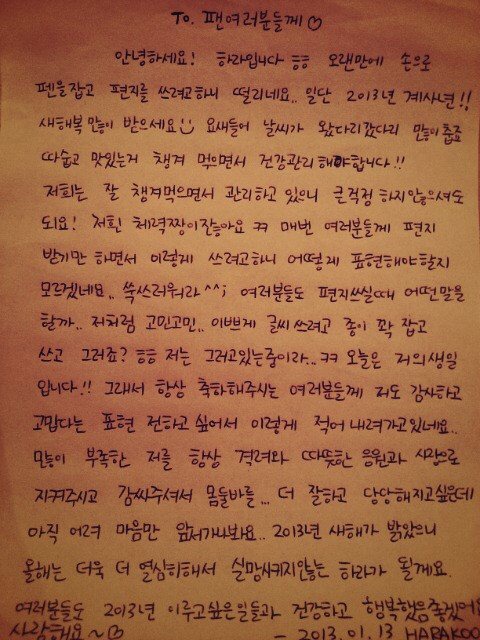 To. 팬여러분들께♡
안녕하세요! 하라입니다 ㅎㅎ 오랜만에 손으로
펜을잡고 편지를 쓰려고하니 떨리네요.. 일단 2013년 계사년!!
새해복 많이 받으세요 요새들어 날씨가 왔다리갔다리 많이춥죠
따숩고 맛있는거 챙겨 먹으면서 건강관리해야합니다!!
저희는 잘 챙겨먹으면서 관리하고 있으니 큰걱정 하지않으셔도
되요! 저흰 체력짱이잖아요 ㅋㅋ 매번 여러분들께 편지
받기만 하면서 이렇게 쓰려고하니 어떻게 표현해야할지
모르겠네요.. 쑥쓰러워라^^; 여러분들도 편지쓰실때 어떤말을
할까.. 저처럼 고민고민.. 이쁘게 글씨쓰려고 종이 꽉 잡고
쓰고 그러죠? ㅎㅎ 저는 그러고있는중이라..ㅋㅋ 오늘은 저의생일
입니다.!! 그래서 항상 축하해주시는 여러분들께 저도 감사하고
고맙다는 표현 전하고싶어서 이렇게 적어내려가고있네요..
많이 부족한 저를 항상 격려와 따뜻한 응원과 사랑으로
지켜주시고 감싸주셔서 몸둘바를... 더 잘하고 당당해지고싶은데
아직 어려 마음만 앞서가나봐요.. 2013년 새해가 밝았으니
올해는 더욱 더 열심히해서 실망시키지않는 하라가 될게요.
여러분들도 2013년 이루고싶은일들과 건강하고 행복했음좋겠어요
사랑해요~♡ - 2013. 01. 13 HARAKOO